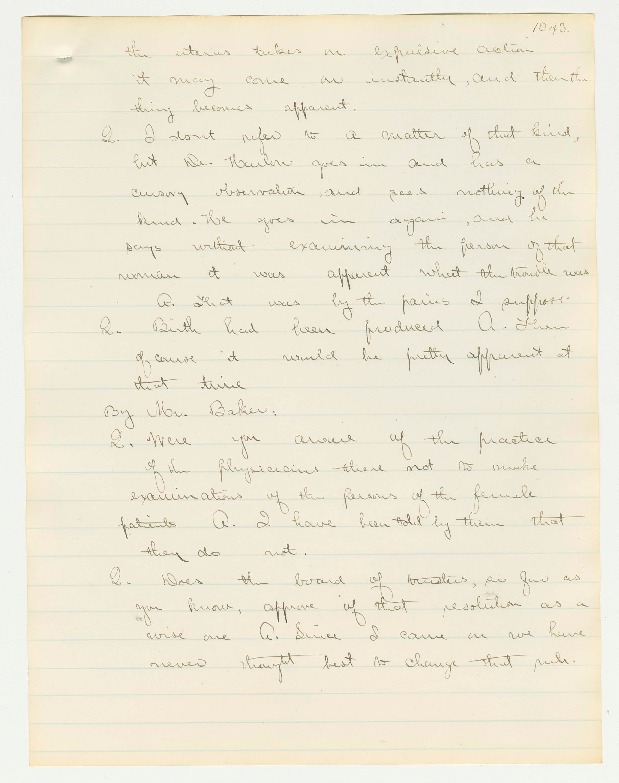 1043.
the uterus takes on expulsive action
it may come on instantly, and then the
thing becomes apparent.
Q. I dont refer to a matter of that kind,
but Dr. goes in and has a
cursory observation and sees nothing of the
kind. He goes in again, and he
says without examining the person of that
woman it was apparent what the trouble was
A. That was by the pains I suppose.
Q. Birth had been produced A. Then
of course it would be pretty apparent at
that time
By Mr. Baker:
Q. Were you aware of the practice
of the physicians there not to make
examinations of the persons of the female
patients A. I have been told by them that
they do not.
Q. Does the board of trustees, so far as
you know, approve of that resolution as a
wise one A. Since I came on we have
never thought best to change that rule.